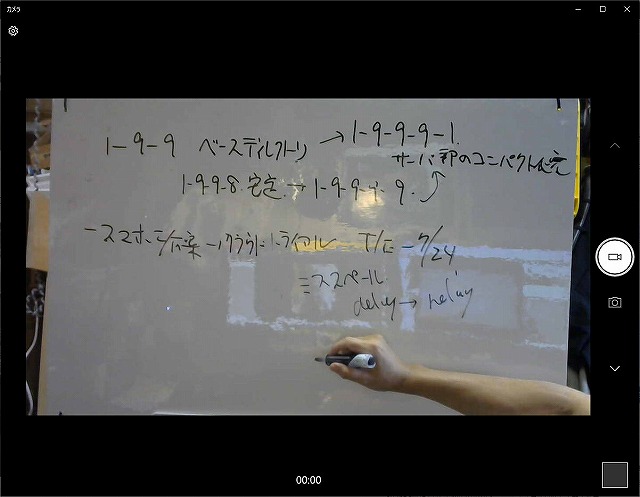 カメラ
1-9-9 ベースディレクトリ → 1-9-9-9-1.
サーバ部のコンパクト
1-9-9-8. → 1-9-9-9-9.
-スマホ トライアル T/E -7/24
ミススペール
delay → relay
00:00